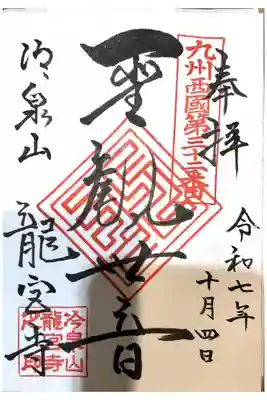 奉拝
令和七年
十月四日
九州西國第三十二番
聖觀世音
冷泉山
龍宮寺
冷泉山
龍宮寺